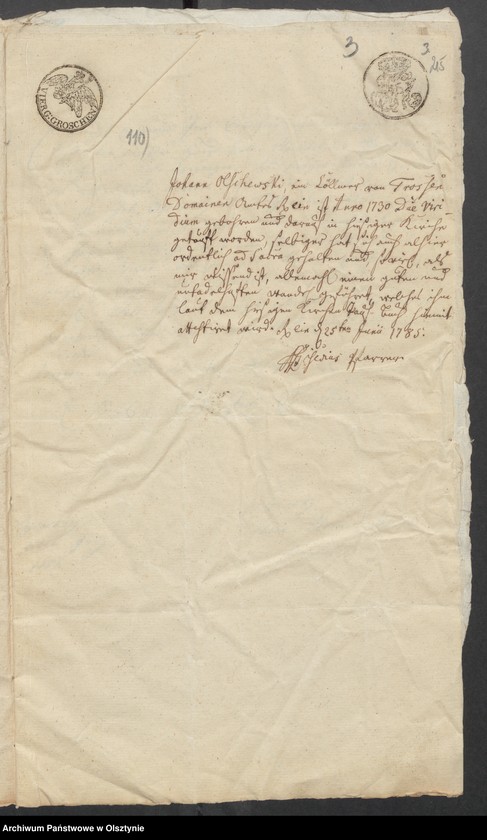 3
3.
215
VIER G. GROSCHEN
110)
Johann Olschewski, ein Cöllmer von Trossen
Domainen Amts Rein ist Anno 1730 Die Viri-
dium gebohren und darauf in hiesiger Kirche
getauft worden, selbiger hat sich auch alhier
ordentlich ad Sacra gehalten und so viel, als
mir wissend ist, allemahl einen guten und
untadelhaften Wandel geführet, welches ihm
laut dem hiesigen Kirchen Tauf Buch hiemit
attestiret wird. Rein d 25ten Junii 1785.
Pfarrer
Archiwum Państwowe w Olsztynie